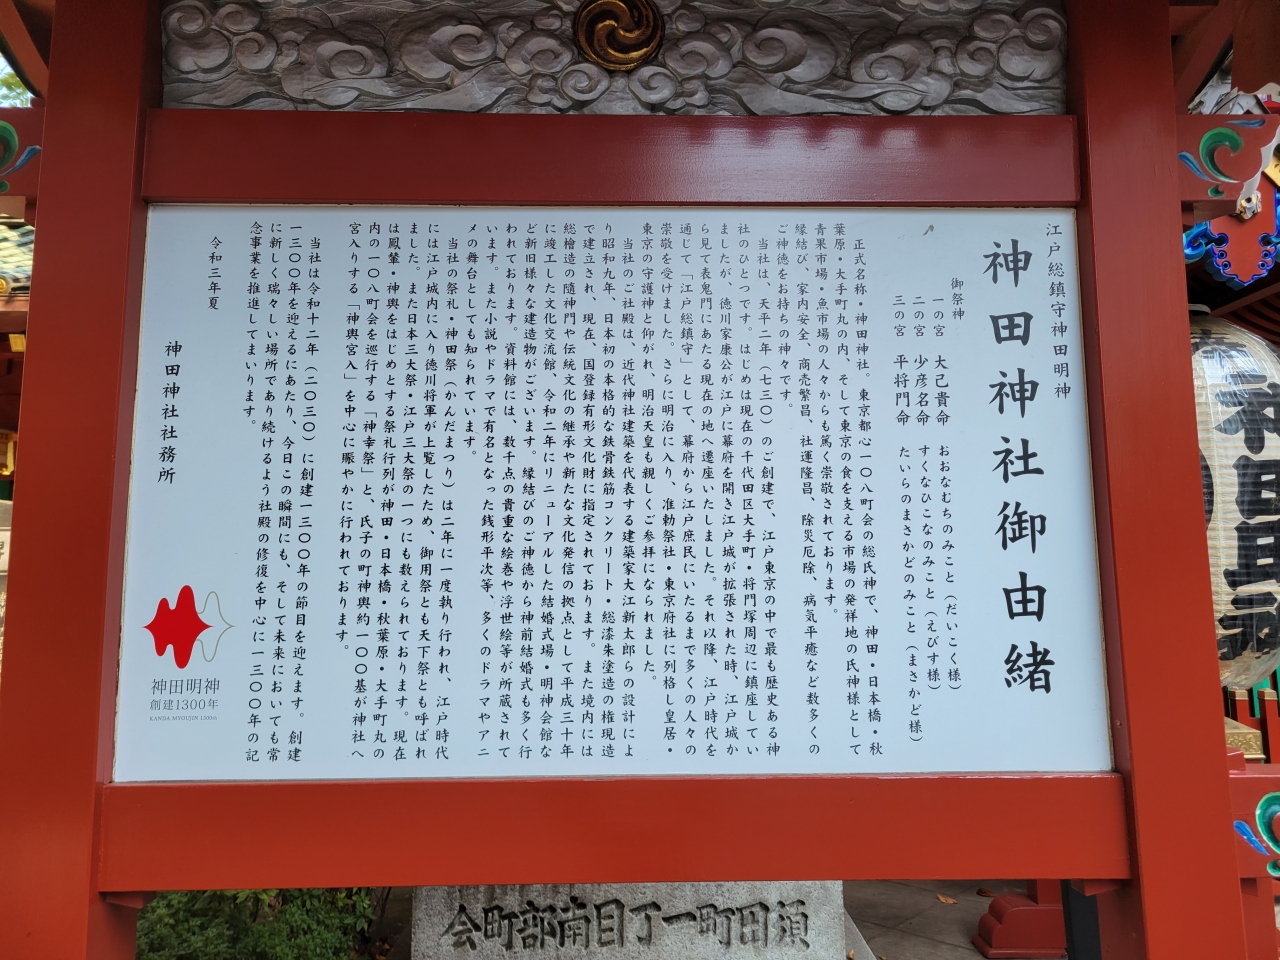 江戸総鎮守神田明神
神田神社御由緒
御祭神
一の宮 大己貴命 おおなむちのみこと(だいこく様)
二の宮 少彦名命 すくなひこなのみこと(えびす様)
三の宮 平将門命 たいらのまさかどのみこと(まさかど様)
正式名称・神田神社。東京都心一〇八町会の総氏神で、神田・日本橋・秋
葉原・大手町丸の内、そして東京の食を支える市場の発祥地の氏神様として
青果市場・魚市場の人々からも篤く崇敬されております。
縁結び、家内安全、商売繁昌、社運隆昌、除災厄除、病気平癒など数多くの
ご神徳をお持ちの神々です。
当社は、天平二年(七三〇)のご創建で、江戸東京の中で最も歴史ある神
社のひとつです。はじめは現在の千代田区大手町・将門塚周辺に鎮座してい
ましたが、徳川家康公が江戸に幕府を開き江戸城が拡張された時、江戸城か
ら見て表鬼門にあたる現在の地へ遷座いたしました。それ以降、江戸時代を
通じて「江戸総鎮守」として、幕府から江戸庶民にいたるまで多くの人々の
崇敬を受けました。さらに明治に入り、准勅祭社・東京府社に列格し皇居・
東京の守護神と仰がれ、明治天皇も親しくご参拝になられました。
当社のご社殿は、近代神社建築を代表する建築家大江新太郎らの設計によ
り昭和九年、日本初の本格的な鉄骨鉄筋コンクリート・総漆朱塗造の権現造
で建立され、現在、国登録有形文化財に指定されております。また境内には
総檜造の隨神門や伝統文化の継承や新たな文化発信の拠点として平成三十年
に竣工した文化交流館、令和二年にリニューアルした結婚式場・明神会館な
ど新旧様々な建造物がございます。縁結びのご神徳から神前結婚式も多く行
われております。資料館には、数千点の貴重な絵巻や浮世絵等が所蔵されて
います。また小説やドラマで有名となった銭形平次等、多くのドラマやアニ
メの舞台としても知られています。
当社の祭礼・神田祭(かんだまつり)は二年に一度執り行われ、江戸時代
には江戸城内に入り徳川将軍が上覧したため、御用祭とも天下祭とも呼ばれ
ました。また日本三大祭・江戸三大祭の一つにも数えられております。現在
は鳳輦・神輿をはじめとする祭礼行列が神田・日本橋・秋葉原・大手町丸の
内の一〇八町会を巡行する「神幸祭」と、氏子の町神輿約一〇〇基が神社へ
宮入りする「神輿宮入」を中心に賑やかに行われております。
当社は令和十二年(二〇三〇)に創建一三〇〇年の節目を迎えます。創建
一三〇〇年を迎えるにあたり、今日この瞬間にも、そして未来においても常
に新しく瑞々しい場所であり続けるよう社殿の修復を中心に一三〇〇年の記
念事業を推進してまいります。
令和三年夏
神田神社社務所
神田明神
創建1300年
KANDA MYOUJIN 1300th
須田町一丁目南部町会